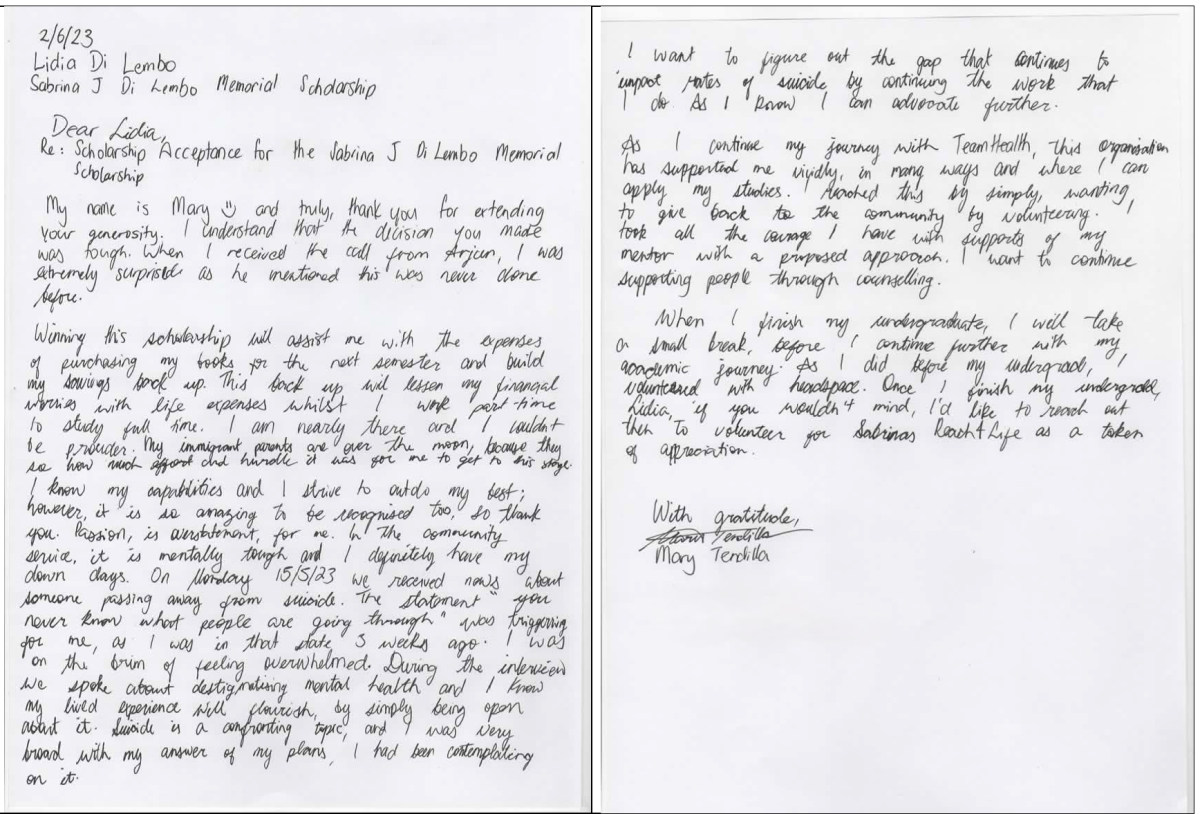 2/6/23
Lidia Di Lembo
Sabrina J Di Lembo Memorial Scholarship
Dear Lidia,
Re: Scholarship Acceptance for the Sabrina J Di Lembo Memorial
Scholarship
My name is Mary :) and truly, thank you for extending
your generosity. I understand that the decision you made
was tough. When I received the call from Arjun, I was
extremely surprised as he mentioned this was never done
before.
Winning this scholarship will assist me with the expenses
of purchasing my books for the next semester and build
my savings back up. This back up will lessen my financal
worries with life expenses whilst I work part-time
to study full time. I am nearly there and I couldn't
be prouder. My immigrant parents are over the moon, because they
see how much effort and hurdle it was for me to get to this stage.
I know my capabilities and I strive to outdo my best;
however, it is so amazing to be recognised too, so thank
you. Passion, is overstatement, for me. In the community
service, it is mentally tough and I definitely have my
down days. On Monday 15/5/23 we received news about
someone passing away from suicide. The statement "you
never know what people are going through" was triggering
for me, as I was in that state 3 weeks ago. I was
on the brim of feeling overwhelmed. During the interview
we spoke about destigmatising mental health and I know
my lived experience will flourish, by simply being open
about it. Suicide is a confronting topic, and I was very
broad with my answer of my plans, I had been contemplating
on it.
I want to figure out the gap that continues to
impact rates of suicide by continuing the work that
I do As I know I can advocate further.
As I continue my journey with TeamHealth, this organisation
has supported me vividly, in many ways and where I can
apply my studies. I reached this by simply, wanting
to give back to the community by volunteering. I
took all the courage I have with supports of my
mentor with a proposed approach. I want to continue
supporting people through counselling.
When I finish my undergraduate, I will take
a small break, before I continue further with my
academic journey. As I did before my undergrad, I
volunteered with headspace. Once I finish my undergrad,
Lidia, if you wouldn't mind, I'd like to reach out
then to volunteer for Sabrinas Reach4Life as a token
of appreciation.
With gratitude,
Mary Tendilla
Mary Tendilla